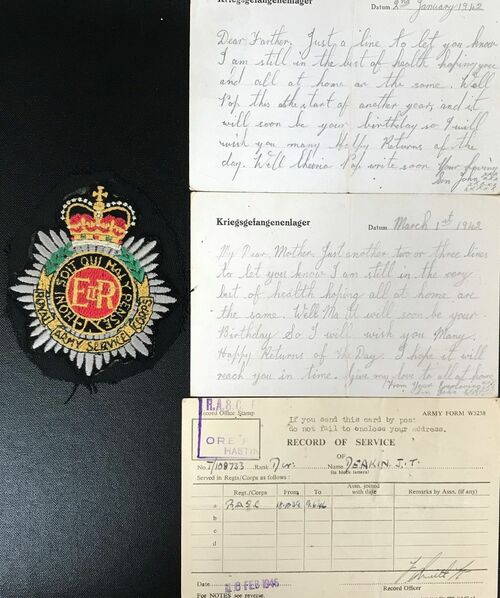 Kriegsgefangenenlager
Datum 2nd January 1942
Dear Farther, Just a line to let you know
I am still in the best of health hoping you
and all at home are the same. Well
Pop this is the start of another year, and it
will soon be your birthday so I will
wish you many Happy Returns of the
day. Well Cheerio Pop write soon Your loving
Son John
HONI SOIT QUI MAL Y PENSE
EIIR
ROYAL ARMY SERVICE CORPS
Kriegsgefangenenlager
Datum March 1st 1942
My Dear Mother. Just another two or three lines
to let you know I am still in the very
best of health hoping all at home are
the same. Well Ma It will soon be your
Birthday So I will wish you Many
Happy Returns of the Day. I hope it will
reach you in time. Give my love to all at home
From Your Loving
Son John
R.A.S.C.
Record Office Stamp
ORE
HASTIN
If you send this card by post
do not fail to enclose your address.
ARMY FORM W3258
RECORD OF SERVICE
OF
No. T/108733 Rank Dvr. Name DEAKIN J.T.
(in block letters)
Served in Regts/Corps as follows:
Regt./Corps From To Assn. joined with date Remarks by Assn. (if any)
a RASC
b
c
d
Date FEB 1946
Record Officer
For NOTES see reverse.